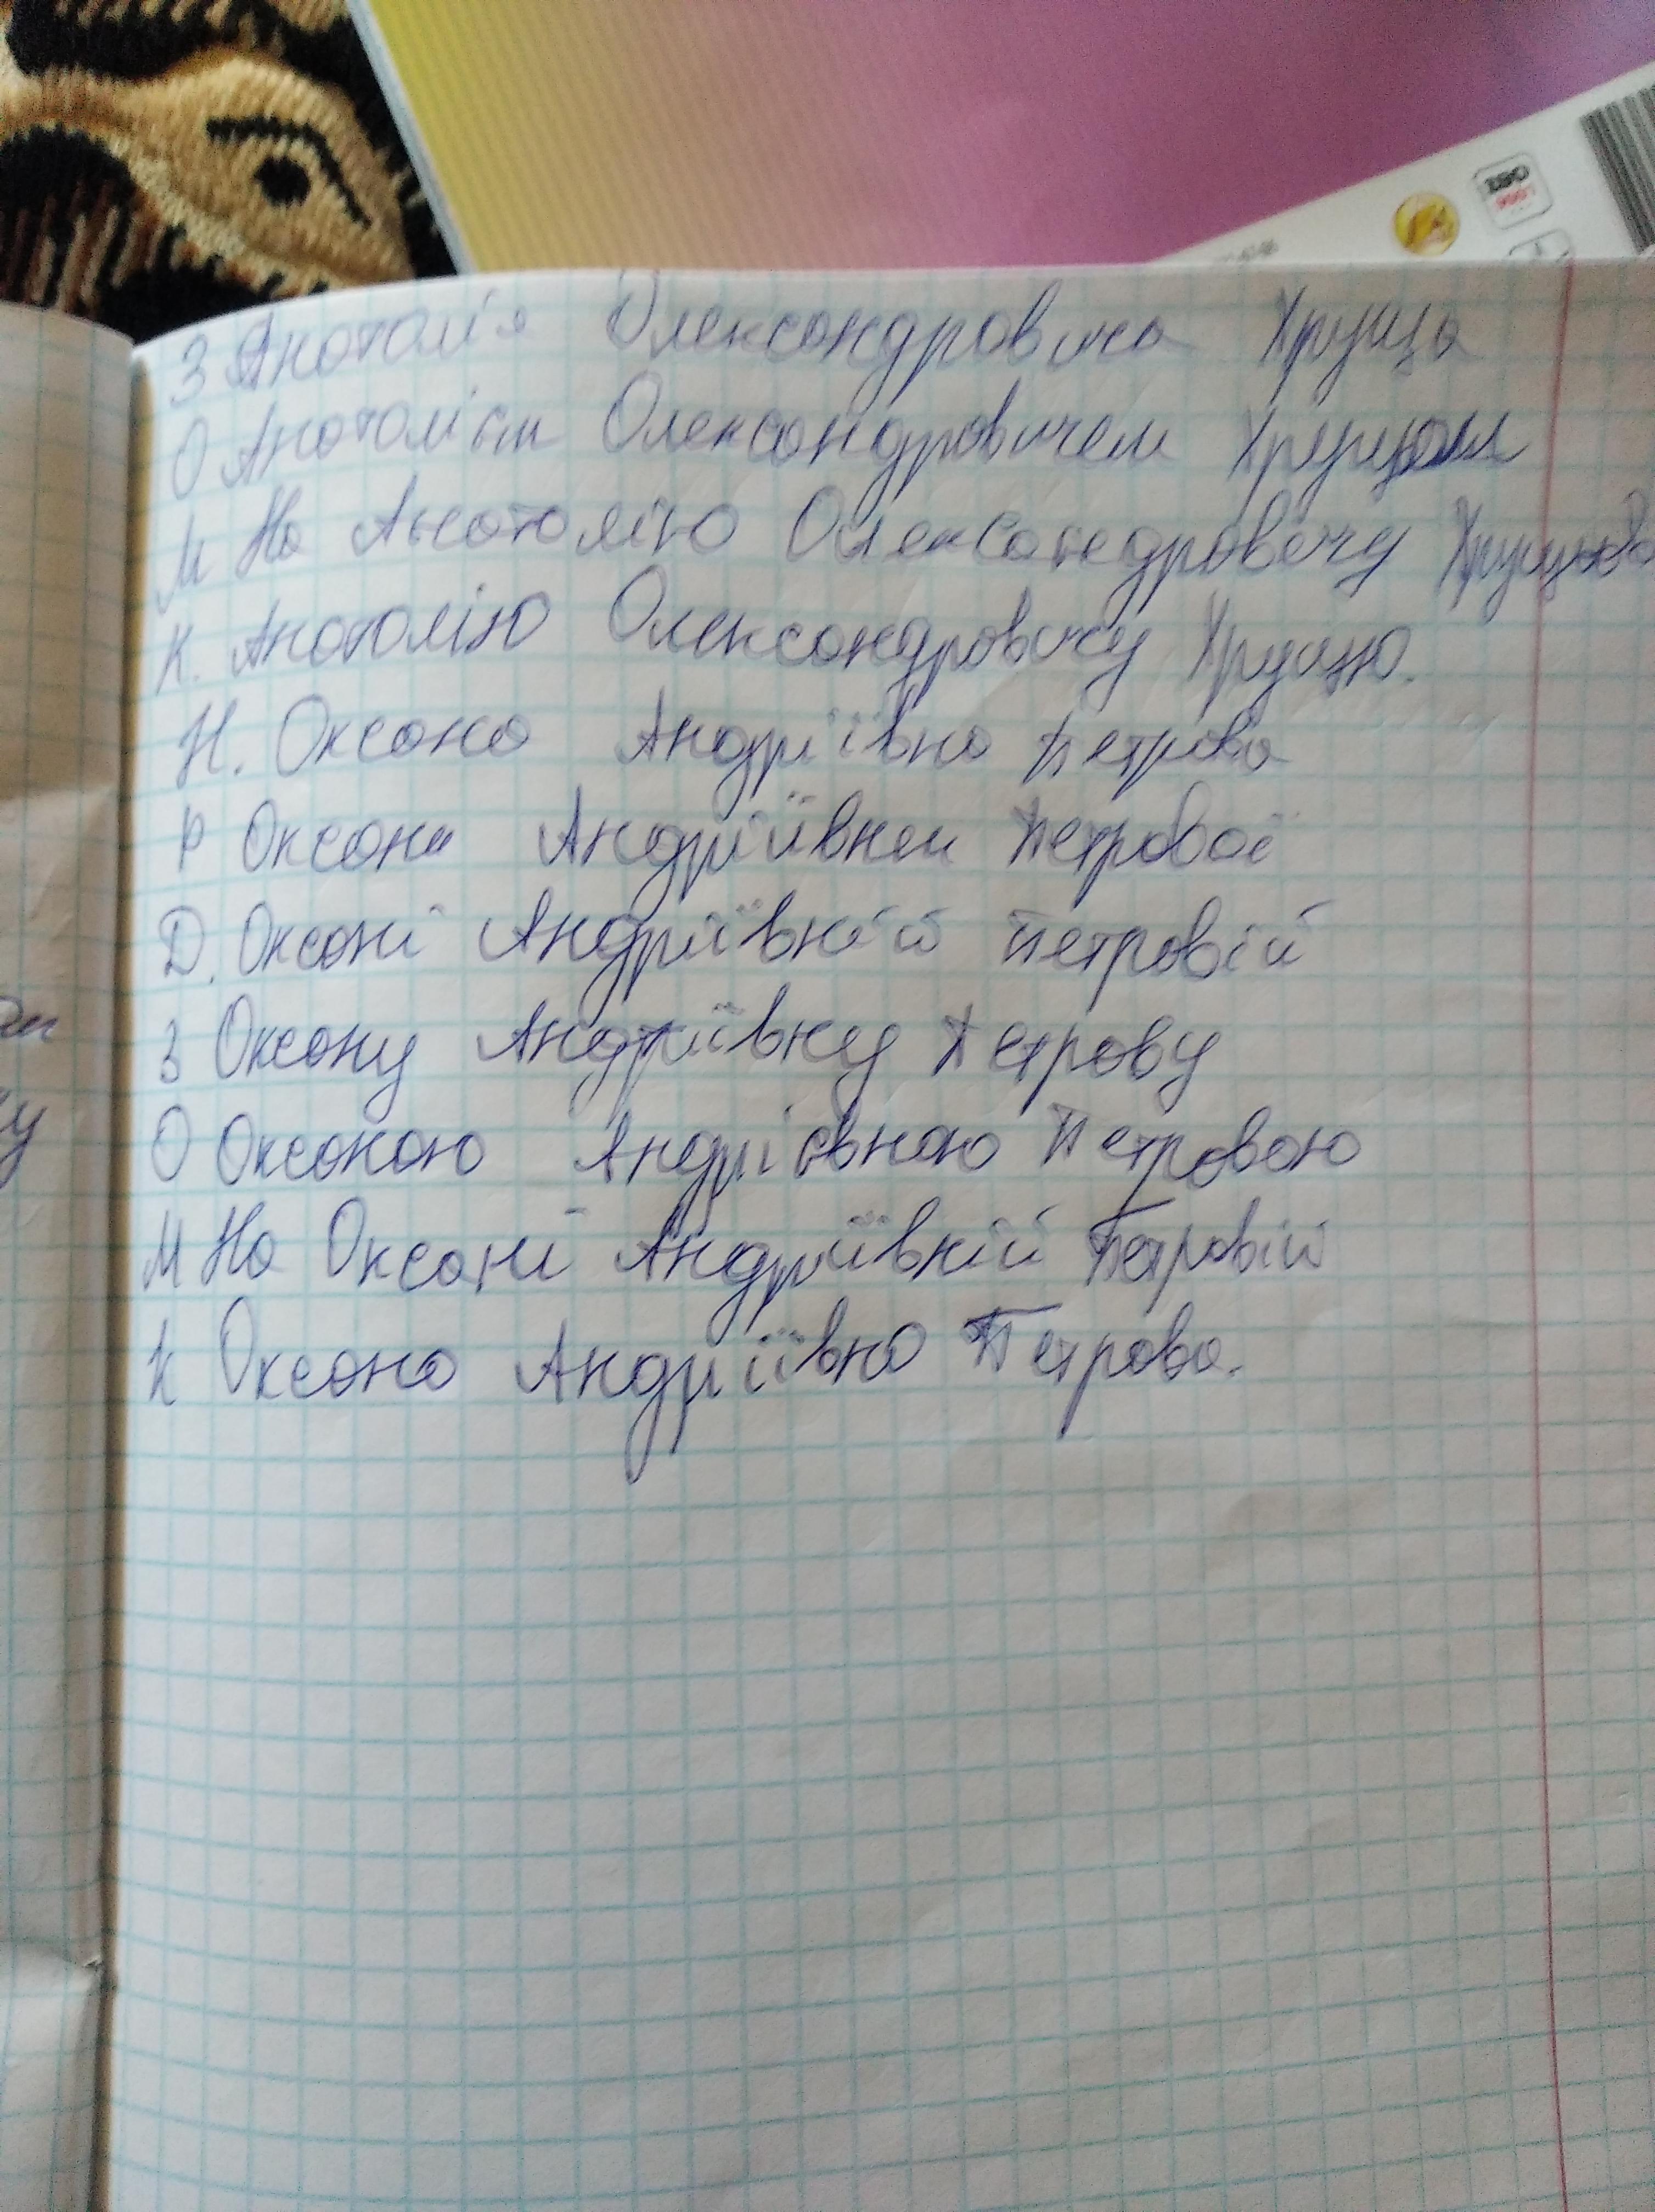 З Анатолія Олександровича Хруща
О Анатолієм Олександровичем Хрущом
М На Анатолію Олександровичу
К. Анатолію Олександровичу Хрущю.
Н. Оксана Андріївна Петрова
Р Оксани Андріївни Петрової
Д. Оксані Андріївній Петровій
З Оксану Андріївну Петрову
О Оксаною Андрієвною Петровою
М На Оксані Андріївній Петровій
К Оксано Андріївно Петрова.